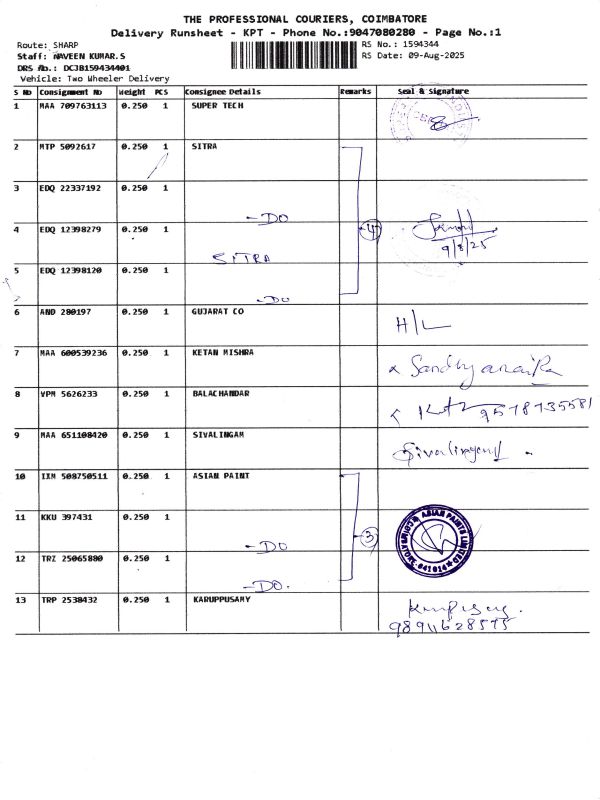 THE PROFESSIONAL COURIERS, COIMBATORE
Delivery Runsheet - KPT - Phone No.:9047080280 - Page No.:1
Route: SHARP
RS No.: 1594344
Staff: NAVEEN KUMAR.S
RS Date: 09-Aug-2025
DRS No.: DCJB159434401
Vehicle: Two Wheeler Delivery
S No Consignment No Weight PCS Consignee Details Remarks Seal & Signature
1 MAA 709763113 0.250 1 SUPER TECH
2 MTP 5092617 0.250 1 SITRA
3 EDQ 22337192 0.250 1
- DO
4 EDQ 12398279 0.250 1 4
SITRA
9/8/25
5 EDQ 12398120 0.250 1
- DO
6 AND 280197 0.250 1 GUJARAT CO
H/L
7 MAA 600539236 0.250 1 KETAN MISHRA
8 VPM 5626233 0.250 1 BALACHANDAR
9578735581
9 MAA 651108420 0.250 1 SIVALINGAM
10 IXM 508750511 0.250 1 ASIAN PAINT
11 KKU 397431 0.250 1
3
ASIAN PAINTS LIMITED
COIMBATORE-641014
- DO
12 TRZ 25065880 0.250 1
- DO.
13 TRP 2538432 0.250 1 KARUPPUSAMY